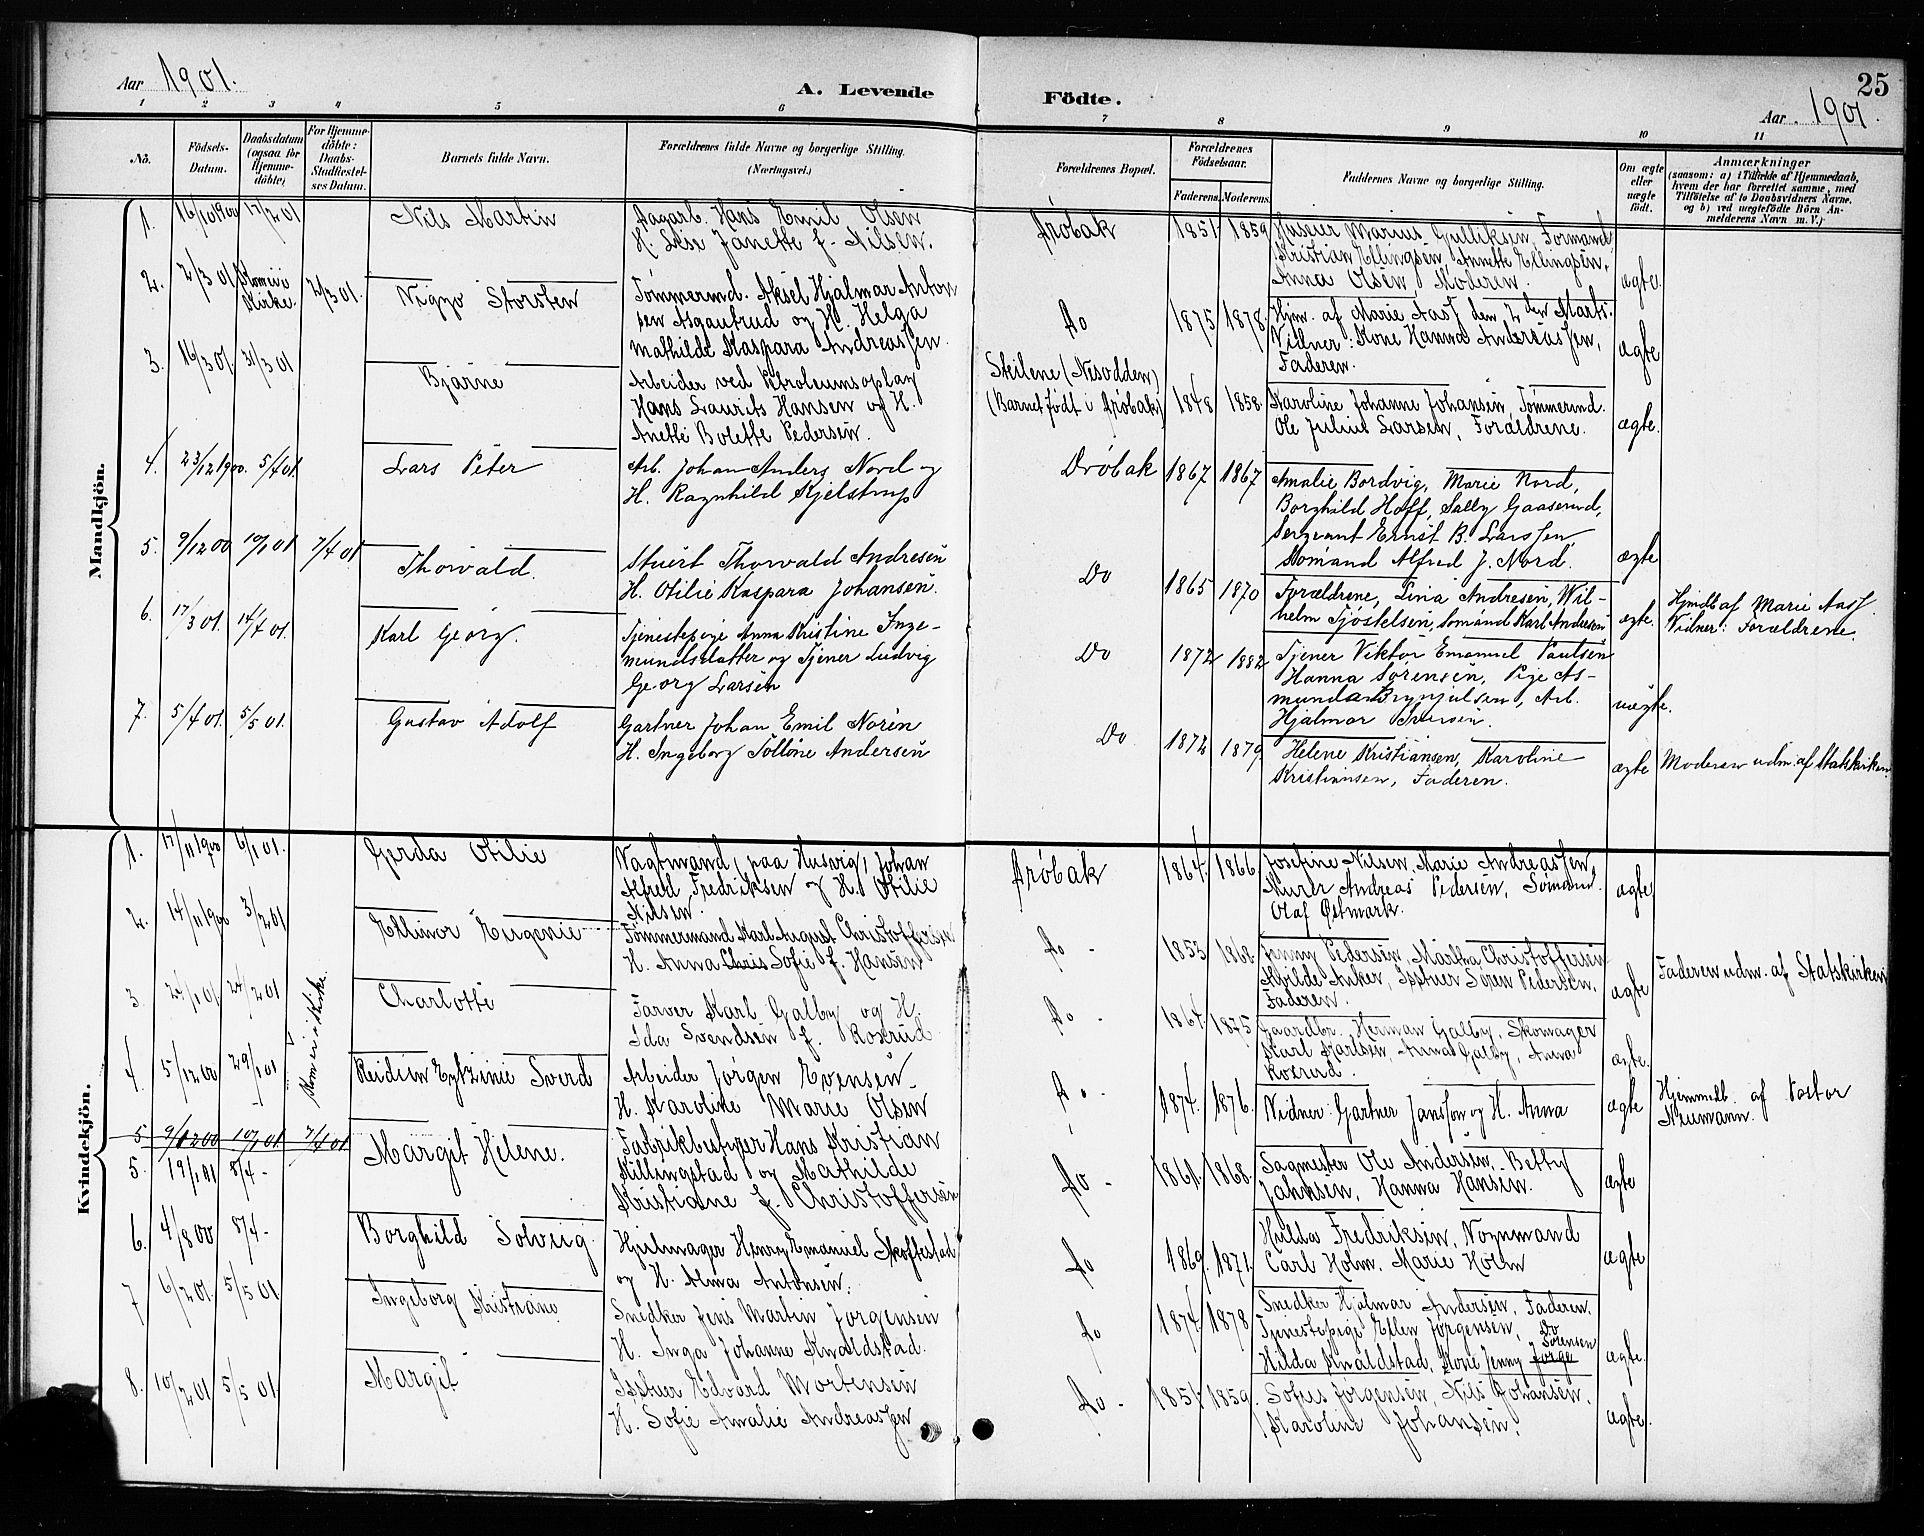 Aar 1901.
A. Levende Födte.
Aar 1901.
25
1 2 3 4 5 6 7 8 9 10 11
No.
Födsels-Datum.
Daabsdatum (ogsaa for Hjemme-döbte)
For Hjemme-döbte: Daabs-Stadfæstel-ses Datum.
Barnets fulde Navn.
Forældrenes fulde Navne og borgerlige Stilling. (Næringsvei.)
Forældrenes Bopæl.
Forældrenes Födselsaar.
Faderens. Moderens.
Faddernes Navne og borgerlige Stilling.
Om ægte eller uægte födt.
Anmærkninger
(saasom: a) i Tilfælde af Hjemmedaab,
hvem der har forrettet samme, med
Tilföielse af to Daabsvidners Navne.
og b) ved uægtefödte Börn An-
melderens Navn m. V.)
Mandkjön.
1. 16/10 1900 17/2 01 Nils Martin
Dagarb. Hans Emil Olsen
H. Lise Janette f. Nilsen.
Drøbak 1851 1859
Huseier Marius Gulliksen, Formand
Kristian Ellingsen, Annette Ellingsen,
Anna Olsen, Moderen.
ægte.
2. 2/3 01 Kom ei i Kirke. 2/3 01. Viggo Torsten
Tømmermd. Aksel Hjalmar Anton
sen Asgautrud og H. Helga
Mathilde Kaspara Andreassen.
Do 1875 1878.
Hjm. af Marie Aas den 2den Marts.
Vidner: Kone Hanna Andreassen,
Faderen.
ægte
3. 16/3 01. 31/3 01 Bjarne
Arbeider ved Petroleumsoplag
Hans Laurits Hansen og H.
Anette Bolette Pedersen.
Steilene (Nesodden)
(Barnet født i Drøbak) 1848 1858.
Karoline Johanne Johansen, Tømmermd.
Ole Julius Larsen, Forældrene.
ægte.
4. 23/12 1900. 5/4 01. Lars Peter
Arb. Johan Anders Nord og
H. Ragnhild Kjelstrup
Drøbak 1867 1867
Amalie Bordvig, Marie Nord,
Borghild Hoff, Sally Gaaserud,
Sergeant Ernst B. Larssen,
Sømand Alfred J. Nord.
ægte
5. 9/12 00 10/1 01 7/4 01 Thorvald.
Stuert Thorvald Andresen
H. Otilie Kaspara Johansen.
Do 1865 1870
Forældrene, Lina Andresen, Wil-
helm Tjøstelsen, Sømand Karl Andresen
ægte.
Hjmdb af Marie Aas
Vidner: Forældrene.
6. 17/3 01. 14/4 01. Karl Georg.
Tjenestepige Anna Kristine Inge-
mundsdatter og Tjener Ludvig
Georg Larsen
Do 1872 1882
Tjener Viktor Emanuel Paulsen
Hanna Sørensen, Pige As-
munda Brynjulsen, Arb.
Hjalmar
uægte.
7. 5/4 01. 5/5 01. Gustav Adolf
Gartner Johan Emil Norén
H. Ingeborg Andersen
Do 1872 1879
Helene Kristiansen, Karoline
Kristiansen, Faderen.
ægte
Moderen udm. af Statskirken
Kvindekjön.
1. 17/11 1900 6/1 01. Gerda Otilie
Vagtmand (paa Husvig) Johan
Alfred Fredriksen og H. Otilie
Nilsen.
Drøbak 1864. 1866
Josefine Nilsen, Marie Andreassen
Murer Andreas Pedersen, Sømand
Olaf Østmark.
ægte
2. 14/11 1900 3/2 01 Ellinor Eugenie
Tømmermand Karl August Christoffersen
H. Anna Chris Sofie f. Hansen
Do - 1853 1868
Jenny Pedersen, Martha Christoffersen
Alvilde Anker, Søren Pedersen,
Faderen.
ægte
Faderen udm. af Statskirken
3. 24/1 01. 24/2 01 Charlotte
Farver Karl Galby og H.
Ida Svendsen f. Rosrud
Do - 1864. 1875
Gaardbr. Herman Galby, Skomager
Karl Karlsen, Anna Galby, Anna
Rosrud.
ægte.
4. 5/12 00 29/1 01 Kom ei i Kirke. Reidun Sverd
Arbeider Jørgen Evensen
H. Karoline Marie Olsen
Do - 1874. 1876.
Vidner: Gartner Jansson og H. Anna
ægte
Hjemmdb. af Pastor
Neumann.
5 9/12 00 10/1 01 7/4 01
5. 19/1 01 8/4 - Margit Helene.
Fabrikbestyrer Hans Kristian
Killingstad og Mathilde
Kristiane f. Christoffersen
Do - 1861. 1868.
Sagmester Ole Andersen, Betty
Jahnsen, Hanna Hansen.
ægte
6. 4/8 00 8/4 - Borghild Solveig.
Hjulmager Henry Emanuel Skoffestad
og H. Alma Antonsen.
Do 1869. 1871.
Hulda Fredriksen, Vognmand
Carl Holm, Marie Holm
ægte
7 6/2 01. 5/5 01. Ingeborg Kristiane
Snedker Jens Martin Jørgensen
H. Inga Johanne Knaldstad.
Do 1874. 1878
Snedker Hjalmar Andersen, Faderen.
Tjenestepige Ellen Jørgensen, Do
Hilda Knaldstad, Kone Jenny Jørge Sørensen
ægte.
8. 10/2 01 5/5 01. Margit
Edvard Mortensen
H. Sofie Amalie Andreassen
Do - 1851 1859.
Sofus Jørgensen, Nils Johansen,
Karoline Johansen.
ægte.